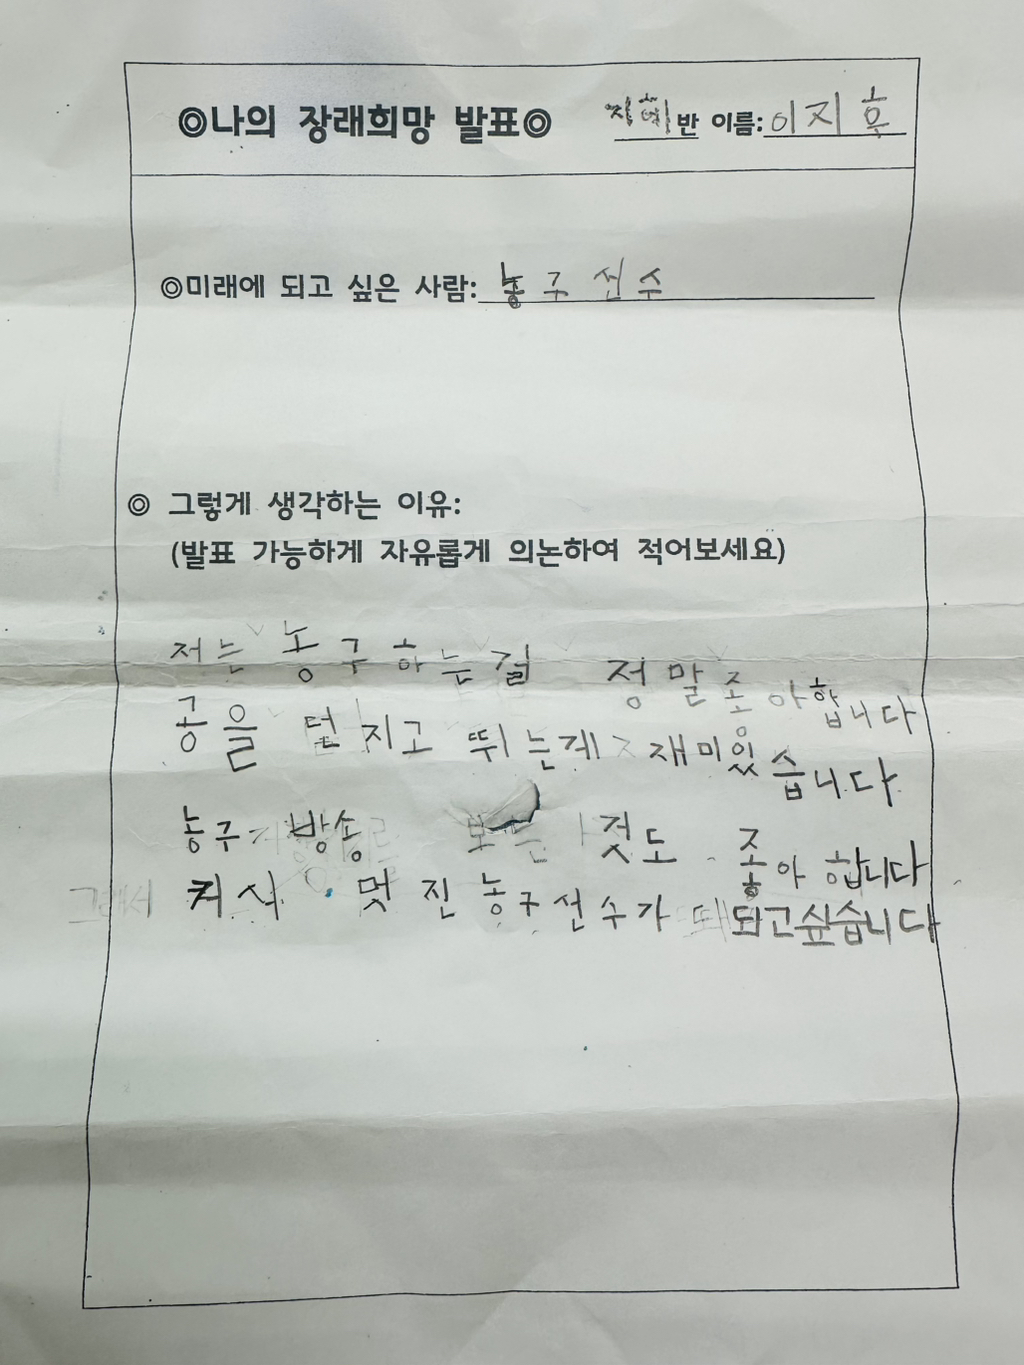 ◎나의 장래희망 발표◎ 지혜반 이름: 이지호
◎미래에 되고 싶은 사람: 농구선수
◎ 그렇게 생각하는 이유:
(발표 가능하게 자유롭게 의논하여 적어보세요)
저는 농구하는걸 정말 종아합니다
공을 던지고 뛰는게 재미있습니다
농구 방송 보는 것도 종아합니다
그래서 커서 멋진 농구선수가 되고싶습니다